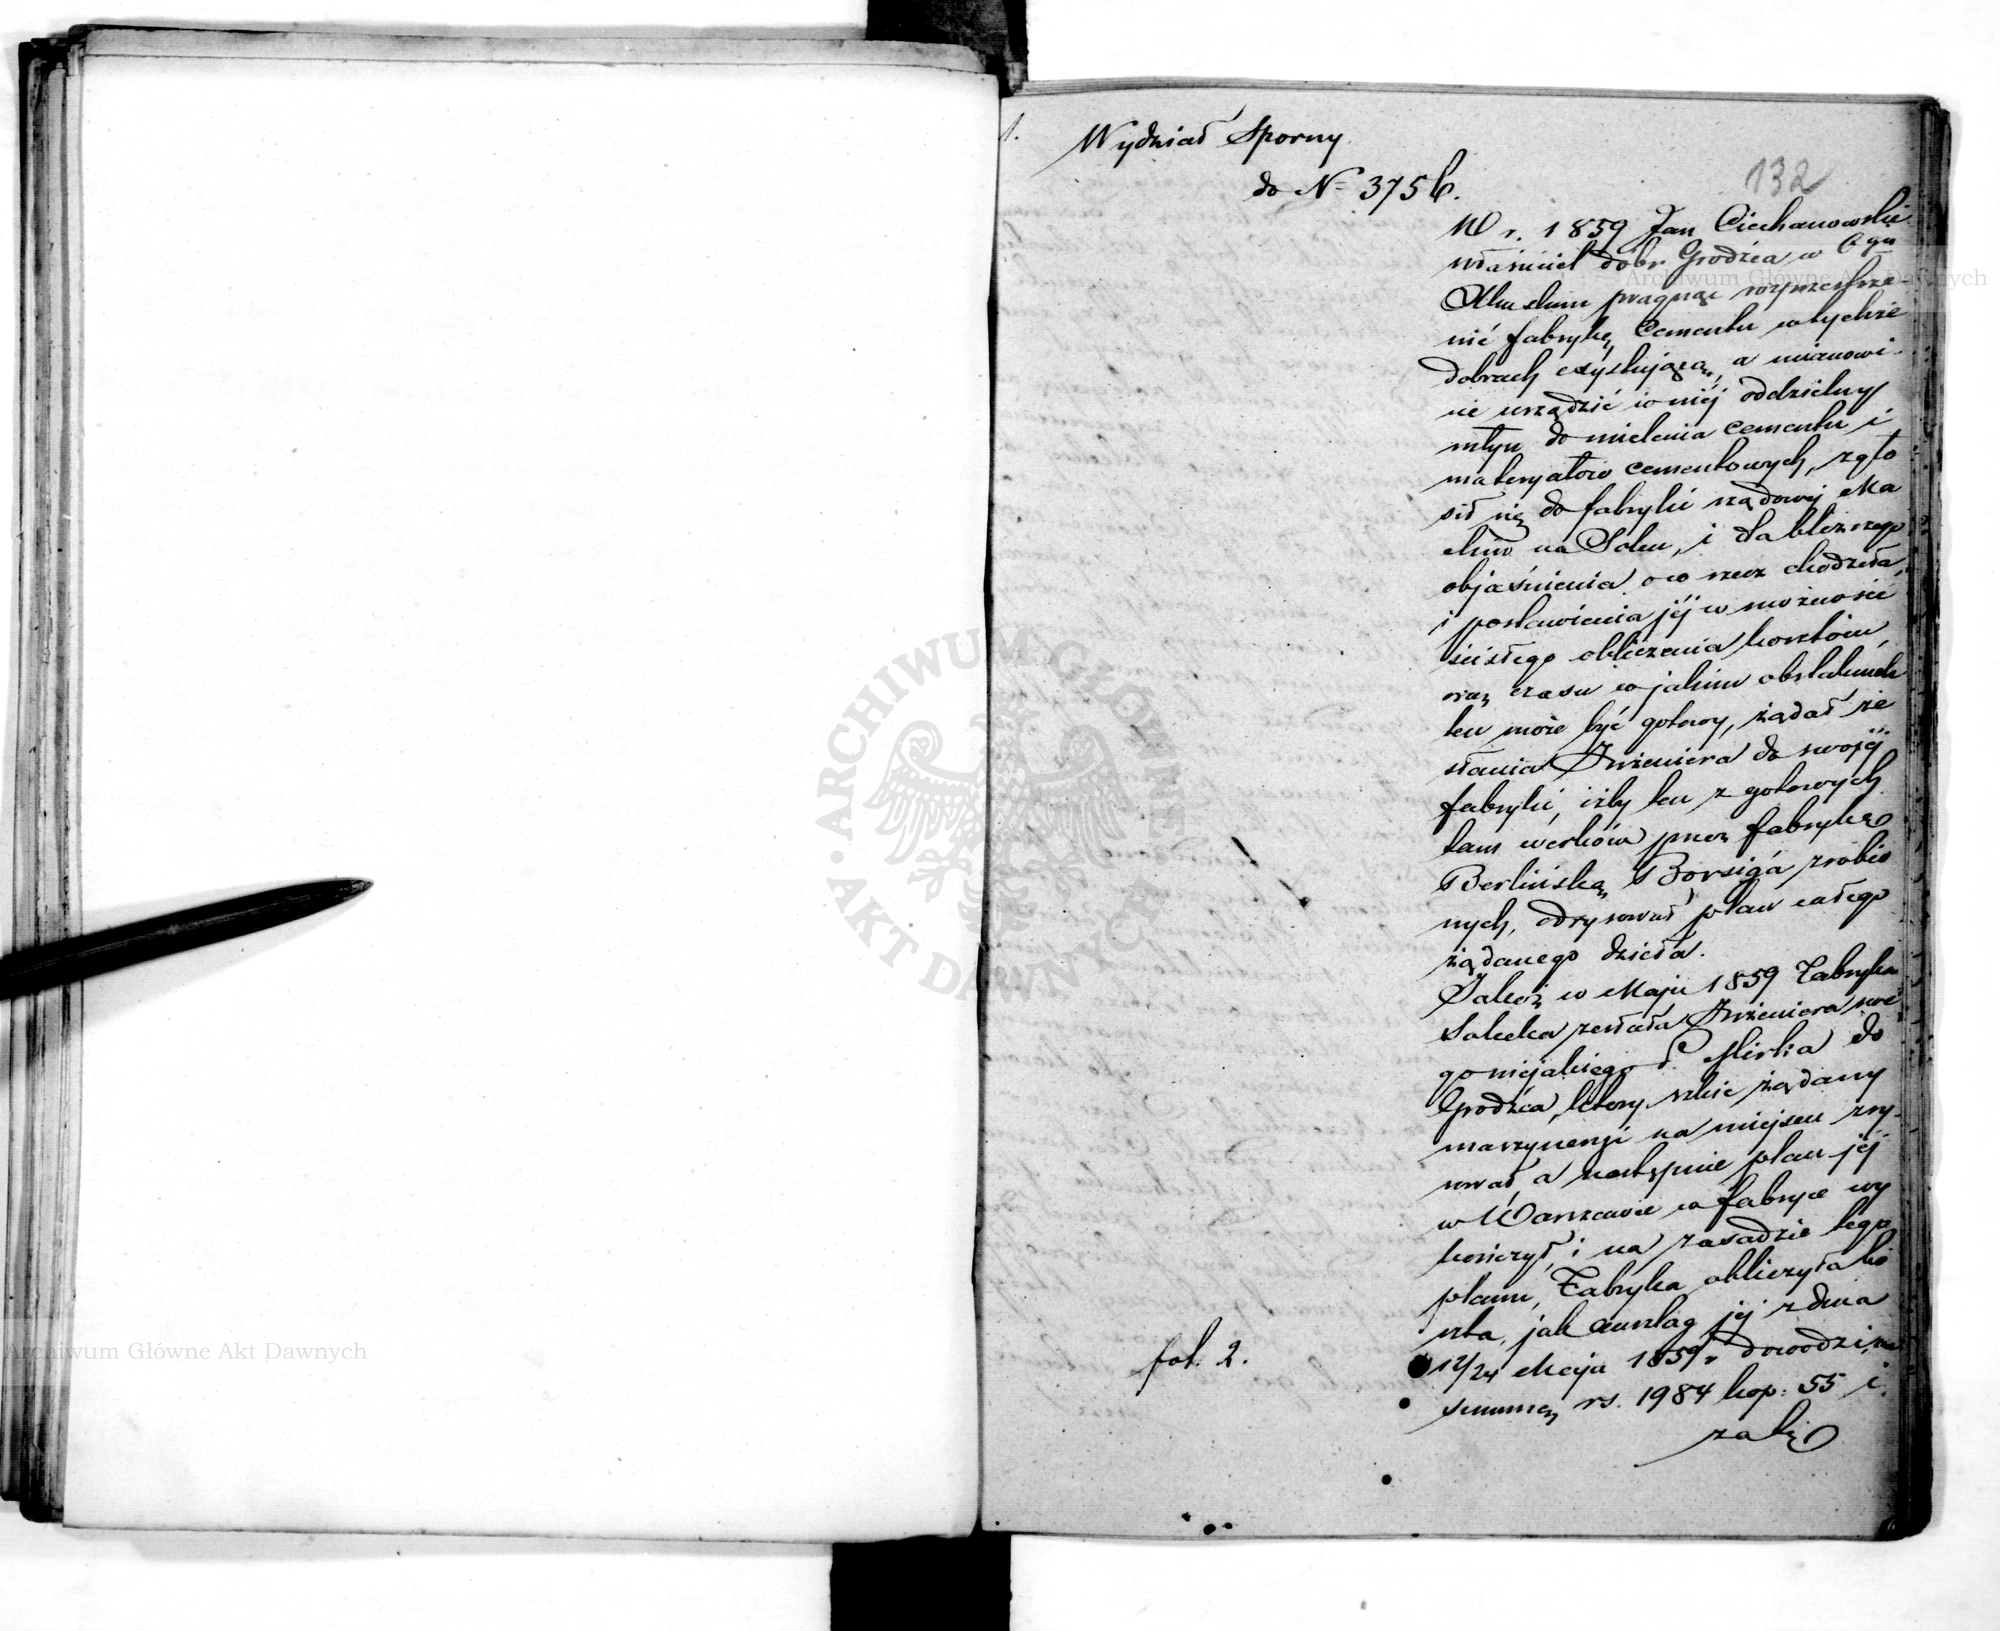 1.
Wydział Sporny
do N= 3756.
132
W r. 1859 Jan Ciechanowski
właściciel dobr Grodźca w Ogu
Olkuskim pragnąc rozprzestrze
nić fabrykę Cementu w tychże
dobrach exystującą, a mianowi-
cie urządzić w niéj oddzielny
młyn do mielenia cementu i
materyałów cementowych, zgło
sił się do fabryki rządowej Ma
chin na Solcu, i dla bliższego
objaśnienia o co rzecz chodziła,
i postawienia jéj w możności
ścisłego obliczenia kosztów,
oraz czasu w jakim obstalunek
ten może być gotowy, żądał ze
słania Inżeniera do swojéj
fabryki, iżby ten z gotowych
tam werków przez fabrykę
Berlińską Borsiga zrobio
nych, odrysował plan całego
żądanego dzieła.
Jakoż w Maju 1859 Fabryka
Solecka zesłała Inżeniera swe
go niejakiego P. Mirka do
Grodźca, który szkic żądany
maszyneryi na miejscu zry-
sował a następnie plan jéj
w Warszawie w fabryce wy
kończył, i na zasadzie tego
planu, Fabryka obliczyła ko
szta, jak anszlag jéj z dnia
12/24 Maja 1859 r dowodzi, na
summę rs. 1984 kop: 55 i
fol. 2.
za tę
Archiwum Główne Akt Dawnych
Archiwum Główne Akt Dawnych
ARCHIWUM GŁÓWNE • AKT DAWNYCH